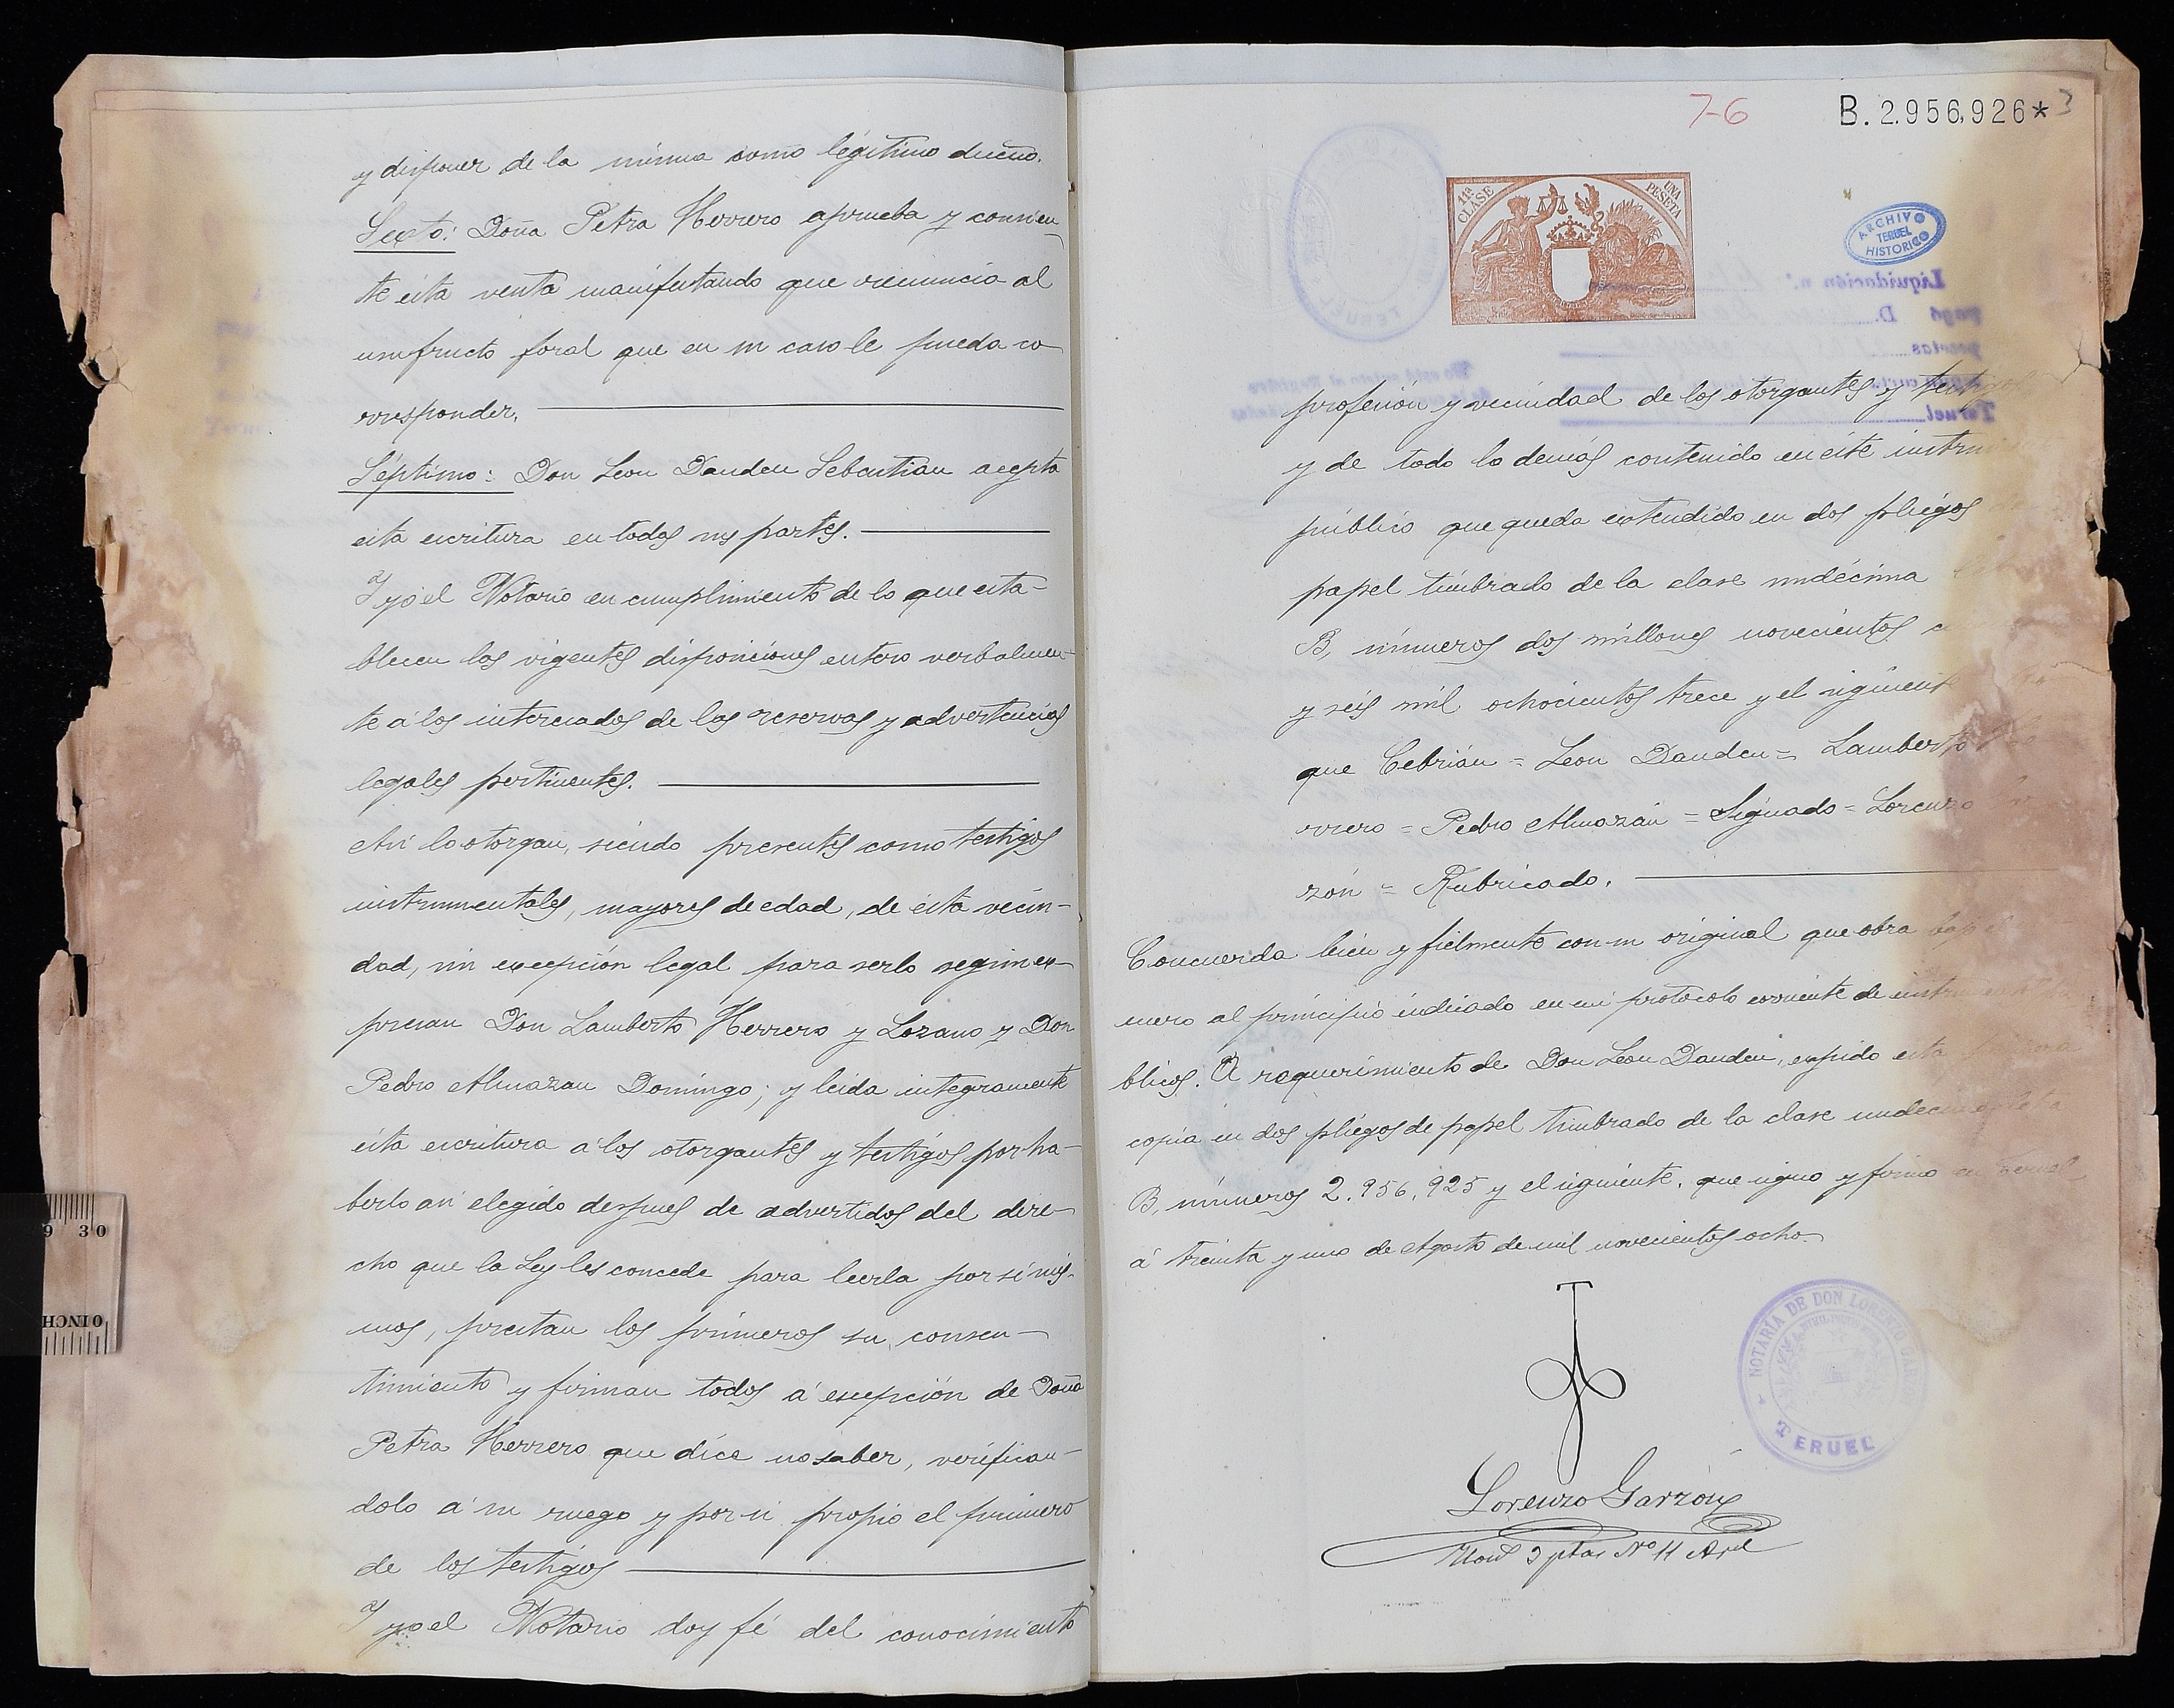 y disponer de la misma como légitimo dueño.
Sexto: Doña Petra Herrero aprueba y consien-
te ésta venta manifestando que renuncia al
usufructo foral que en su caso le pueda co
rresponder.
Séptimo: Don Leon Dauden Sebastian acepta
ésta escritura en todas sus partes.
Y yo el Notario en cumplimiento de lo que esta-
blecen las vigentes disposiciones entero verbalmen-
te á los interesados de las reservas y advertencias
legales pertinentes.
Asi lo otorgan, siendo presentes como testigos
instrumentales, mayores de edad, de ésta vecin-
dad, sin excepción legal para serlo segun ex-
presan Don Lamberto Herrero y Lozano y Don
Pedro Almazan Domingo; y leida integramente
ésta escritura á los otorgantes y testigos por ha-
berlo asi elegido despues de advertidos del dere-
cho que la Ley les concede para leerla por si mis-
mos, prestan los primeros su consen-
timiento y firman todos á excepción de Doña
Petra Herrero que dice no saber, verifican-
dolo á su ruego y por si propio el primero
de los testigos
Y yo el Notario doy fé del conocimiento
7-6
B.2.956,926*
3
11ª CLASE
UNA PESETA
ARCHIVO
TERUEL
HISTORICO
TERUEL
Liquidación n.º
pagó D.
pesetas
Teruel
profesión y vecindad de los otorgantes y testigos
y de todo lo demás contenido en éste
público que queda extendido en dos pliegos
papel timbrado de la clase undécima
B, números dos millones novecientos
y seis mil ochocientos trece y el siguiente
que Cebrián = Leon Dauden = Lamberto
rrero = Pedro Almazán = Signado = Lorenzo
zón = Rubricado.
Concuerda bien y fielmente con su original que obra bajo el
mero al principio indicado en mi protocolo corriente de
blicos. A requerimiento de Don Leon Dauden, expido esta primera
copia en dos pliegos de papel timbrado de la clase undecima
B, números 2.956,925 y el siguiente, que signo y firmo en Teruel
á treinta y uno de Agosto de mil novecientos ocho.
NOTARÍA DE DON LORENZO
TERUEL
Lorenzo Garzón
9 30
0 INCH